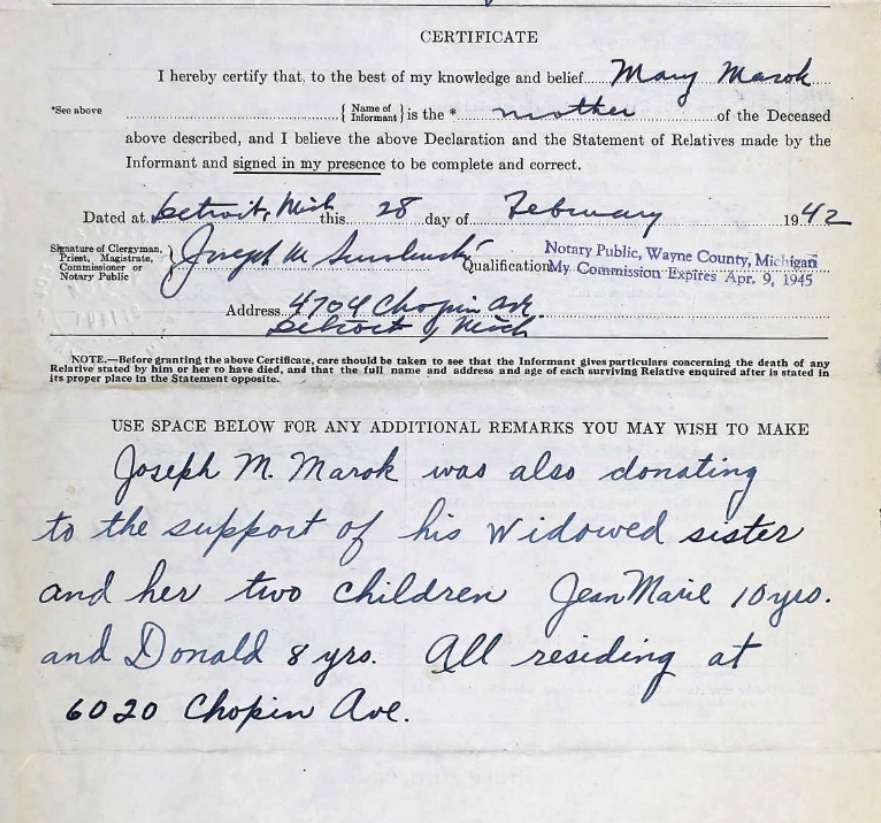 CERTIFICATE
I hereby certify that, to the best of my knowledge and belief Mary Marok
*See above { Name of Informant } is the * mother of the Deceased
above described, and I believe the above Declaration and the Statement of Relatives made by the
Informant and signed in my presence to be complete and correct.
Dated at Detroit, Mich this 28 day of February 1942
Signature of Clergyman, Priest, Magistrate, Commissioner or Notary Public } Joseph M Qualification Notary Public, Wayne County, Michigan
My Commission Expires Apr. 9, 1945
Address 4704 Chopin Ave.
Detroit Mich
NOTE.—Before granting the above Certificate, care should be taken to see that the Informant gives particulars concerning the death of any
Relative stated by him or her to have died, and that the full name and address and age of each surviving Relative enquired after is stated in
its proper place in the Statement opposite.
USE SPACE BELOW FOR ANY ADDITIONAL REMARKS YOU MAY WISH TO MAKE
Joseph M. Marok was also donating
to the support of his Widowed sister
and her two children Jean Marie 10 yrs.
and Donald 8 yrs. All residing at
6020 Chopin Ave.